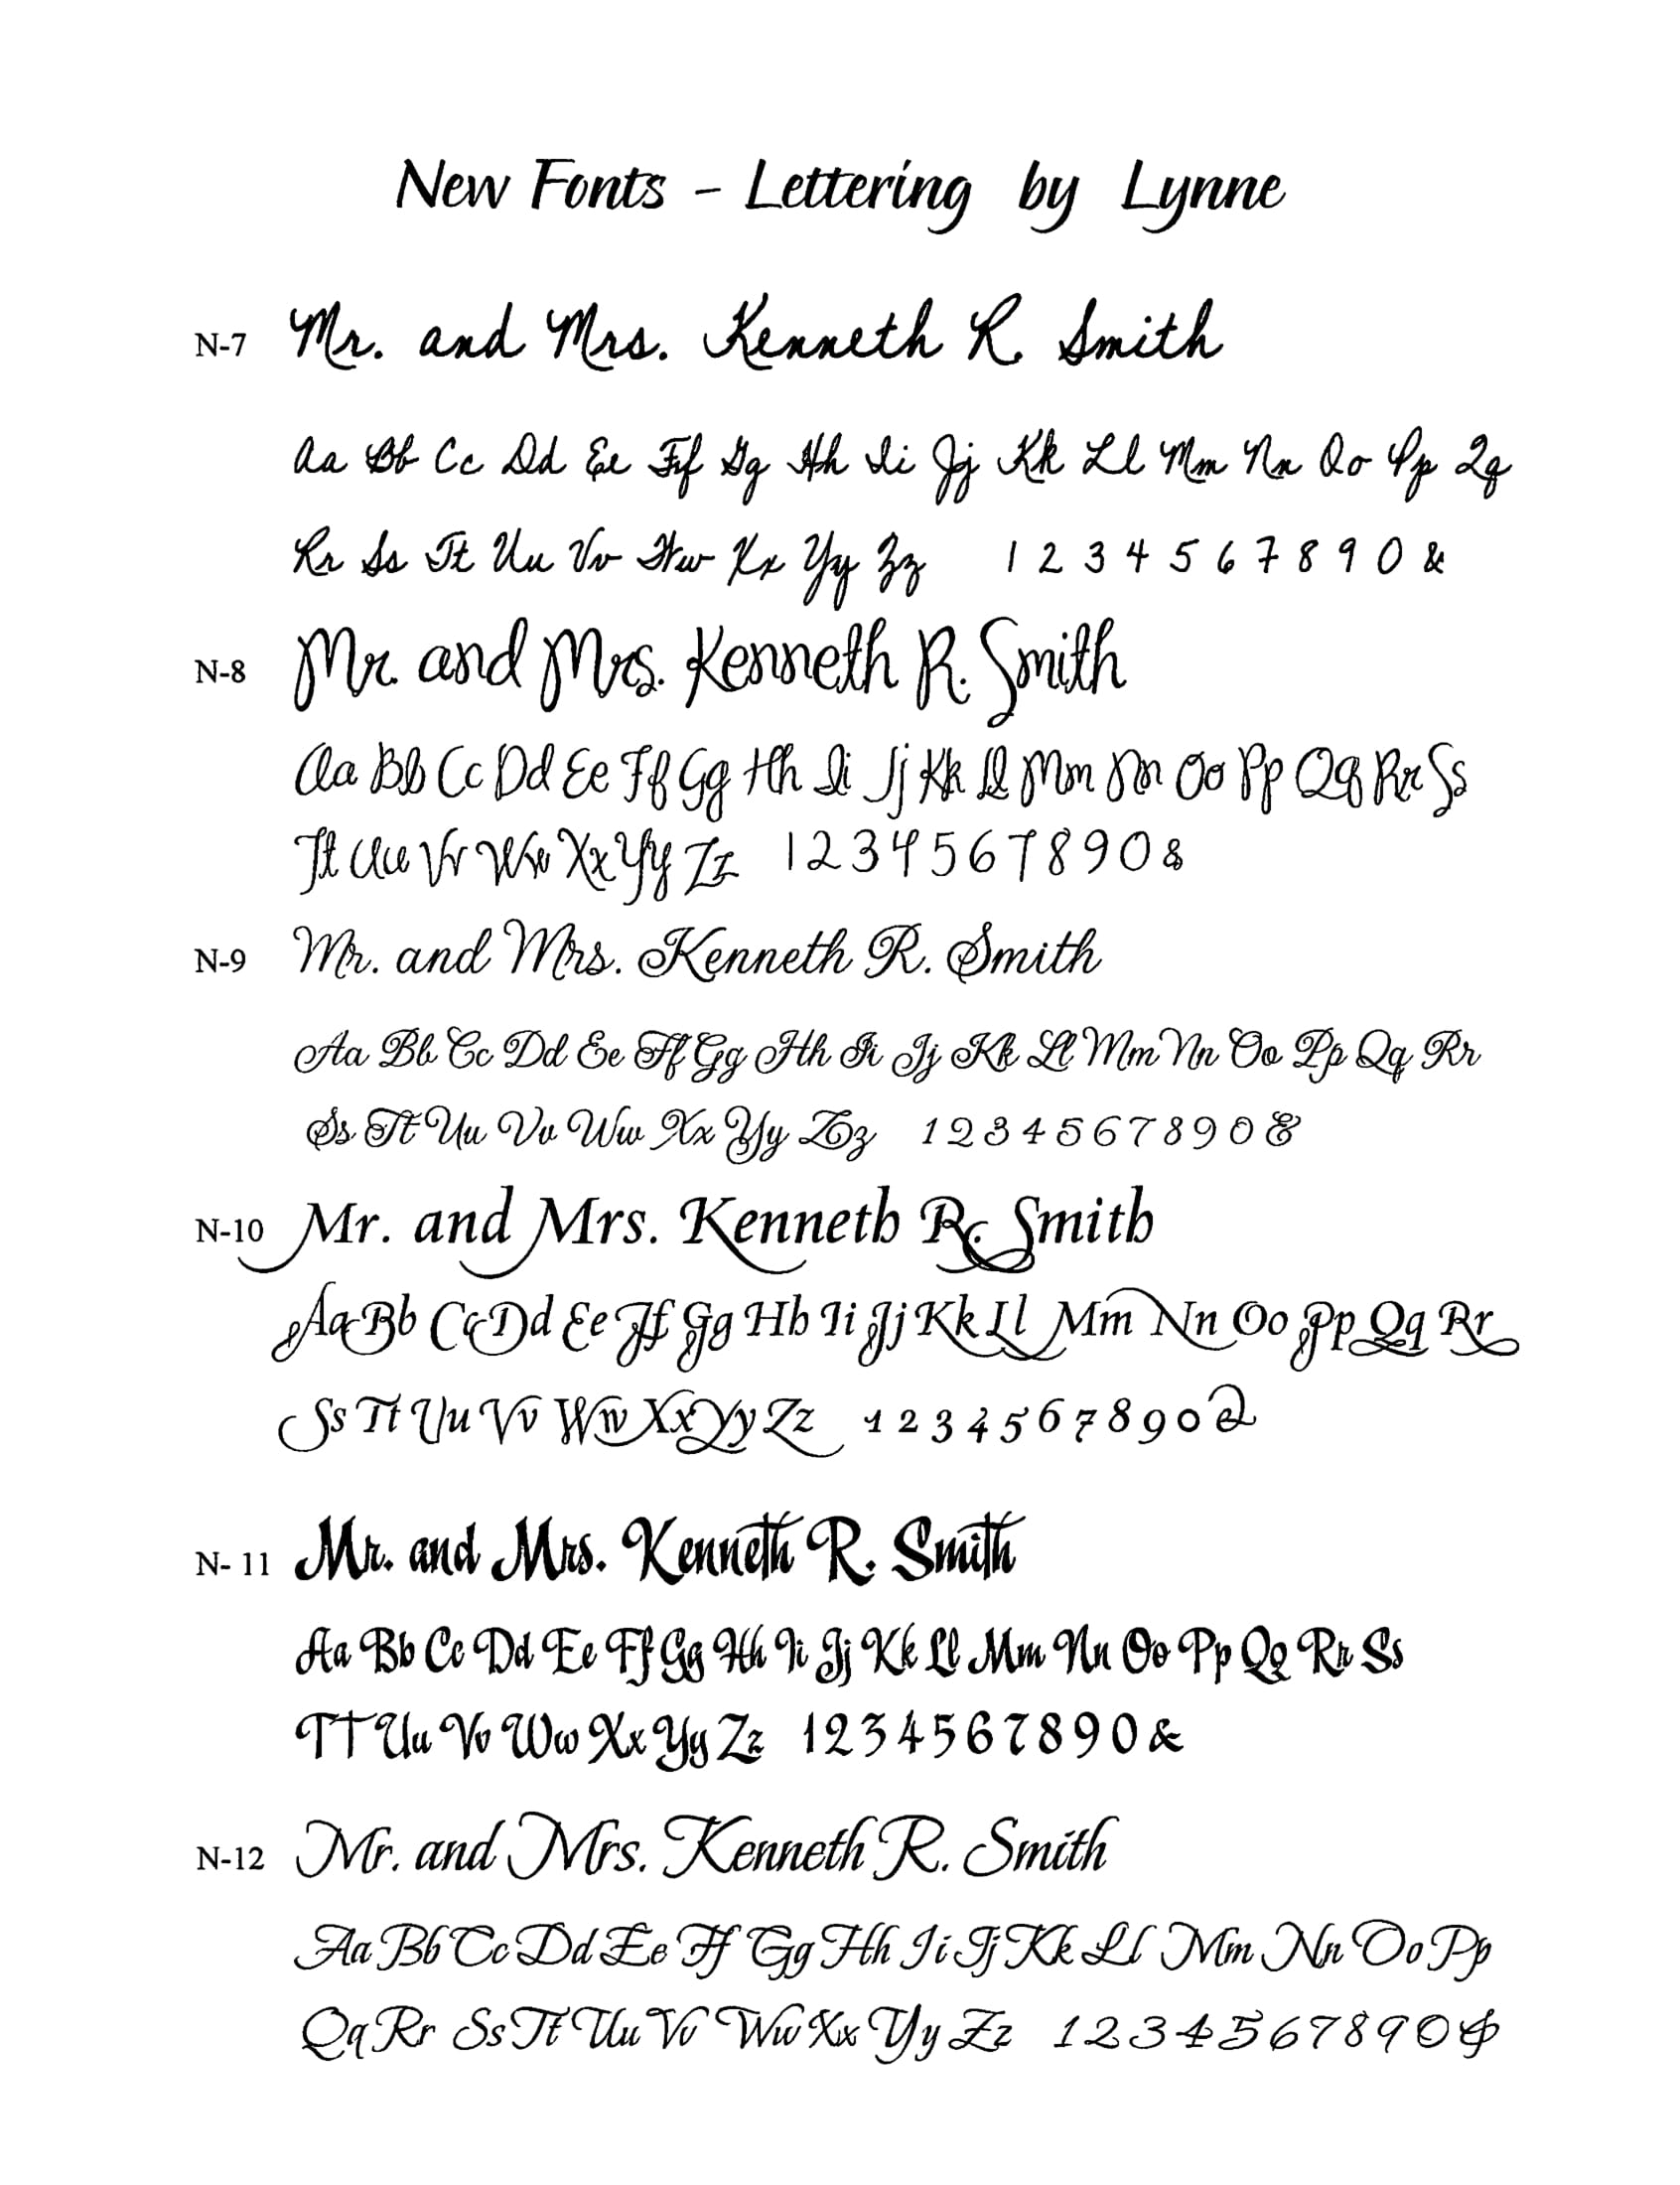 New Fonts - Lettering by Lynne
N-7 Mr. and Mrs. Kenneth R. Smith
Aa Bb Cc Dd Ee Ff Gg Hh Ii Jj Kk Ll Mm Nn Oo Pp Qq
Rr Ss Tt Uu Vv Ww Xx Yy Zz 1 2 3 4 5 6 7 8 9 0 &
N-8 Mr. and Mrs. Kenneth R. Smith
Aa Bb Cc Dd Ee Ff Gg Hh Ii Jj Kk Ll Mm Nn Oo Pp Qq Rr Ss
Tt Uu Vv Ww Xx Yy Zz 1 2 3 4 5 6 7 8 9 0 &
N-9 Mr. and Mrs. Kenneth R. Smith
Aa Bb Cc Dd Ee Ff Gg Hh Ii Jj Kk Ll Mm Nn Oo Pp Qq Rr
Ss Tt Uu Vv Ww Xx Yy Zz 1 2 3 4 5 6 7 8 9 0 &
N-10 Mr. and Mrs. Kenneth R. Smith
Aa Bb Cc Dd Ee Ff Gg Hh Ii Jj Kk Ll Mm Nn Oo Pp Qq Rr
Ss Tt Uu Vv Ww Xx Yy Zz 1 2 3 4 5 6 7 8 9 0 &
N- 11 Mr. and Mrs. Kenneth R. Smith
Aa Bb Cc Dd Ee Ff Gg Hh Ii Jj Kk Ll Mm Nn Oo Pp Qq Rr Ss
Tt Uu Vv Ww Xx Yy Zz 1 2 3 4 5 6 7 8 9 0 &
N-12 Mr. and Mrs. Kenneth R. Smith
Aa Bb Cc Dd Ee Ff Gg Hh Ii Jj Kk Ll Mm Nn Oo Pp
Qq Rr Ss Tt Uu Vv Ww Xx Yy Zz 1 2 3 4 5 6 7 8 9 0 &